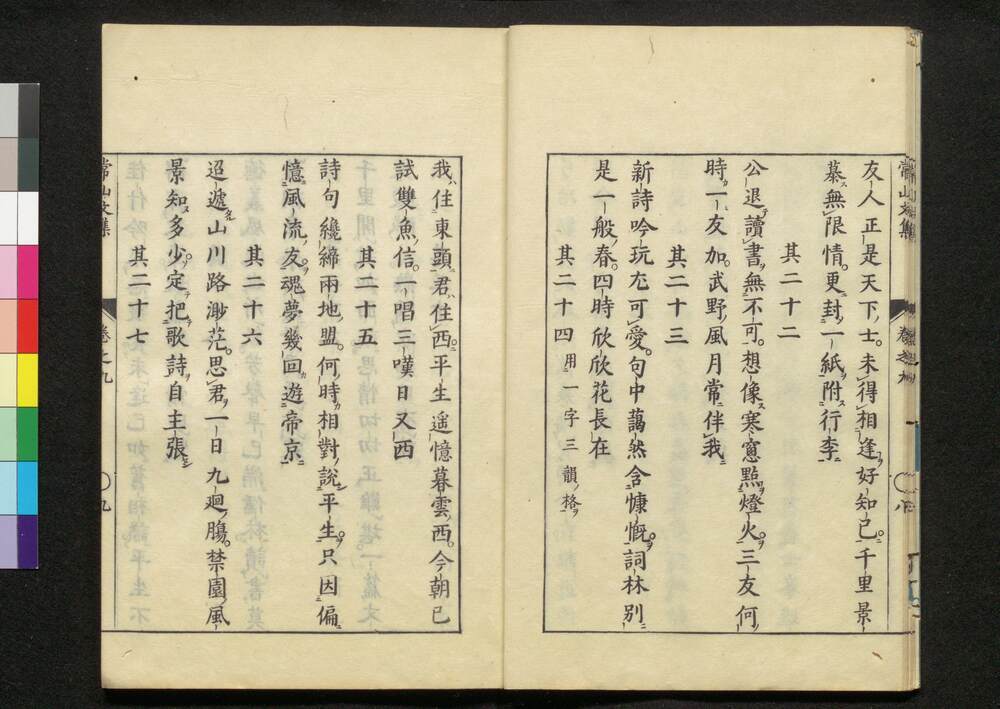 常山文集
卷之九
〇八
友人正是天下士。未得相逢好知己。千里景
慕無限情。更封一紙附行李
其二十二
公退讀書無不可。想像寒窻點燈火。三友何
時一友加。武野風月常伴我
其二十三
新詩吟玩尤可愛。句中藹然含慷慨。詞林別
是一般春。四時欣欣花長在
其二十四用一字三韻格
我住東頭君住西。平生遥憶暮雲西。今朝已
試雙魚信。一唱三嘆日又西
其二十五
詩句纔締兩地盟。何時相對說平生。只因偏
憶風流友。魂夢幾回遊帝京
其二十六
迢遞山川路渺茫。思君一日九廻腸。禁園風
景知多少。定把歌詩自主張
其二十七
常山文集
卷之九
〇九